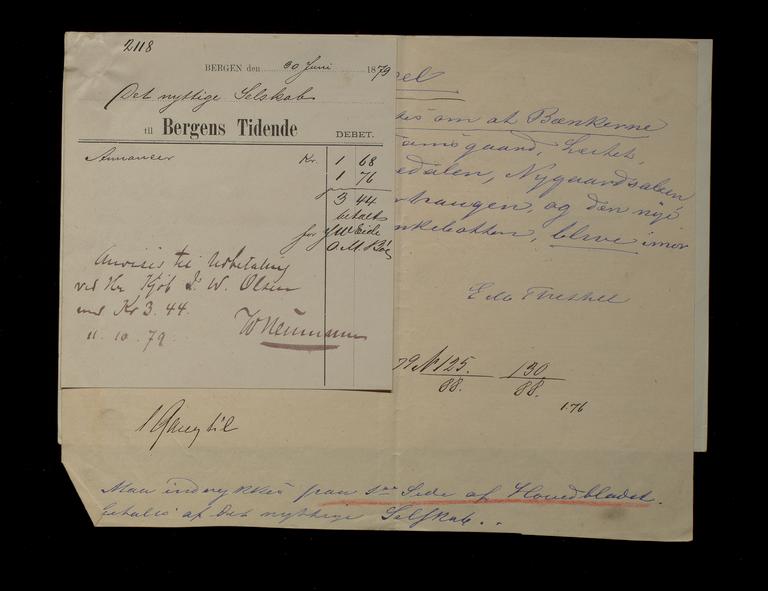 2118
BERGEN den 30 Juni 1879
Det nyttige Selskab
til Bergens Tidende DEBET.
Annoncer Kr. 1 68
1 76
3 44
betalt
for J W Eide
O. M.
Anvises til Udbetaling
ved Hr Kjöb J. W. Olsen
med Kr 3.44.
11.10.79.
W Neumann
om at Bænkerne
gaard,
edalen, Nygaardsalleen,
haugen, og den nye
blive
79 No 125. 130
88. 88.
1.76
1 Gang til
Maa indrykkes paa 1ste Side af Hovedbladet.
betales af Det nyttige Selskab.